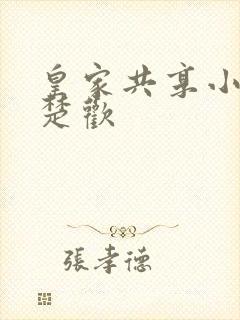 皇家共享小
楚歡
張孝德